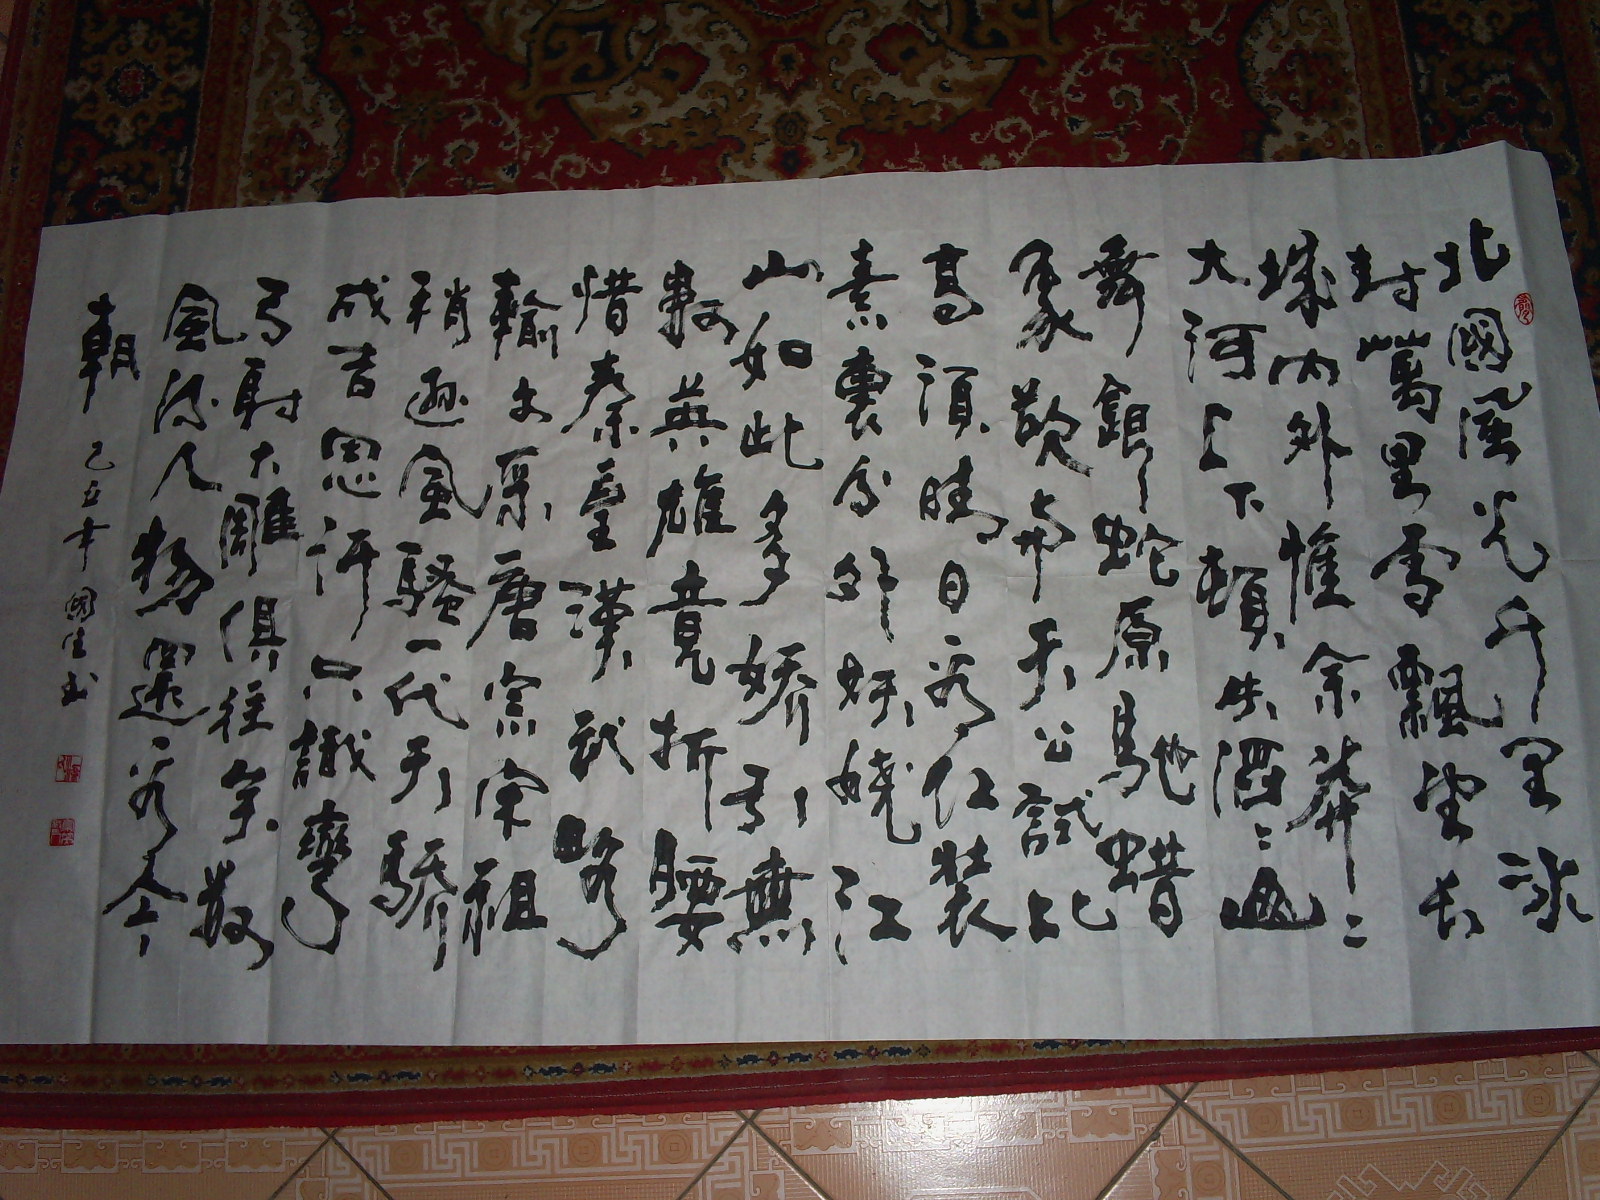 北國風光千里冰
封萬里雪飄望長
城內外惟余莽々
大河上下頓失滔々山
舞銀蛇原馳蜡
象欲与天公試比
高須晴日看红裝
素裹分外妖嬈江
山如此多娇引無
數英雄竟折腰
惜秦皇漢武略
輸文采唐宗宋祖
稍遜風騷一代天骄
成吉思汗只識彎
弓射大雕俱往矣数
風流人物還看今
朝
己丑年國生书